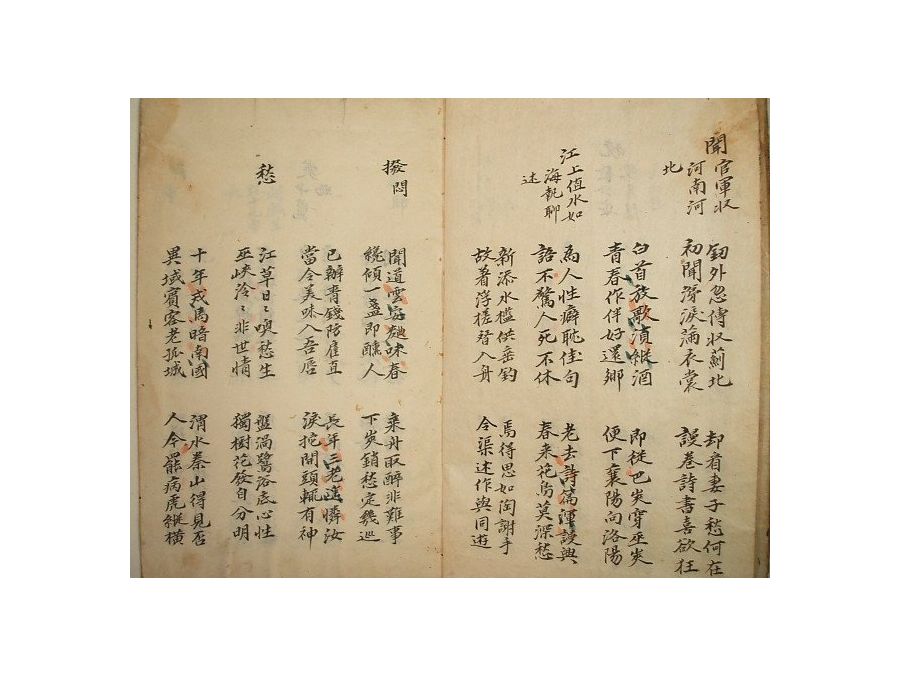 聞官軍収
河南河
北
釼外忽傳収薊北
初聞涕淚滿衣裳
却看妻子愁何在
謾卷詩書喜欲狂
白首放歌須縱酒
青春作伴好還鄉
即從巴峡穿巫峡
便下襄陽向洛陽
江上值水如
海執聊
述
為人性癖耽佳句
語不驚人死不休
老去詩篇渾謾與
春来花鳥莫深愁
新添水檻供垂釣
故着浮槎替入舟
焉得思如陶謝手
令渠述作與同遊
撥悶
聞道雲安麯味春
纔傾一盞即醺人
乘舟取醉非難事
下峡銷愁定幾巡
已辦青錢防雇直
當令美味入吾唇
長年三老遙憐汝
淚拕開頭輒有神
愁
江草日〻喚愁生
巫峡泠〻非世情
盤渦鷺浴底心性
獨樹花發自分明
十年戎馬暗南國
異域賓客老孤城
渭水秦山得見否
人今罷病虎縱橫